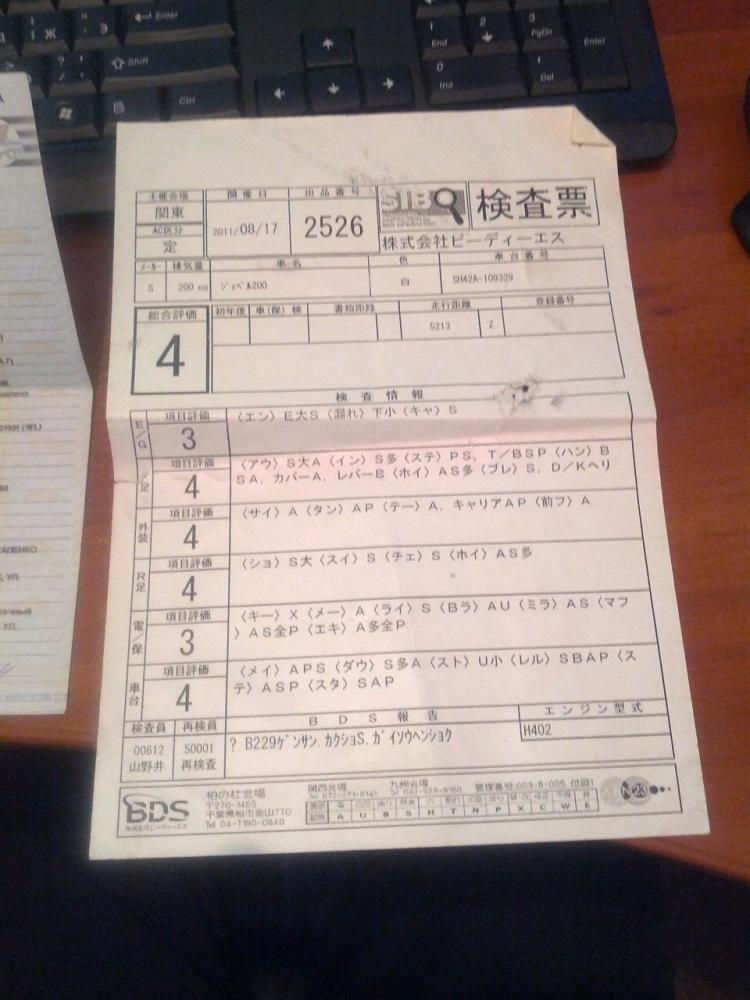 Enter
PgDn
Shift
End
Enter
0
Ins
Del
Ctrl
主催会場
開催日
出品番号
検査票
関東
AC区分
定
2011/08/17
2526
株式会社ビーディーエス
メーカー
排気量
車名
色
車台番号
S
200 cc
ジェベル200
白
SH42A-109329
総合評価
4
初年度
車(保)検
書類距離
走行距離
登録番号
5213
Z
検査情報
E/G
項目評価
3
〈エン〉E大S〈漏れ〉下小〈キャ〉S
項目評価
4
〈アウ〉S大A〈イン〉S多〈ステ〉PS、T/BSP〈ハン〉B
SA、カバーA、レバーB〈ホイ〉AS多〈ブレ〉S、D/Kヘリ
外装
項目評価
4
〈サイ〉A〈タン〉AP〈テー〉A、キャリアAP〈前フ〉A
R足
項目評価
4
〈ショ〉S大〈スイ〉S〈チェ〉S〈ホイ〉AS多
電/保
項目評価
3
〈キー〉X〈メー〉A〈ライ〉S〈Bラ〉AU〈ミラ〉AS〈マフ
〉AS全P〈エキ〉A多全P
車台
項目評価
4
〈メイ〉APS〈ダウ〉S多A〈スト〉U小〈レル〉SBAP〈ス
テ〉ASP〈スタ〉SAP
検査員
再検員
BDS報告
エンジン型式
00612
山野井
50001
再検査
? B229ゲンサン、カクショS、ガイソウヘンショク
H402
BDS
株式会社ビーディーエス
柏の杜会場
〒270-1455
千葉県柏市金山770
Tel 04-7190-0640
関西会場
九州会場
A U B S H T N P X C W E